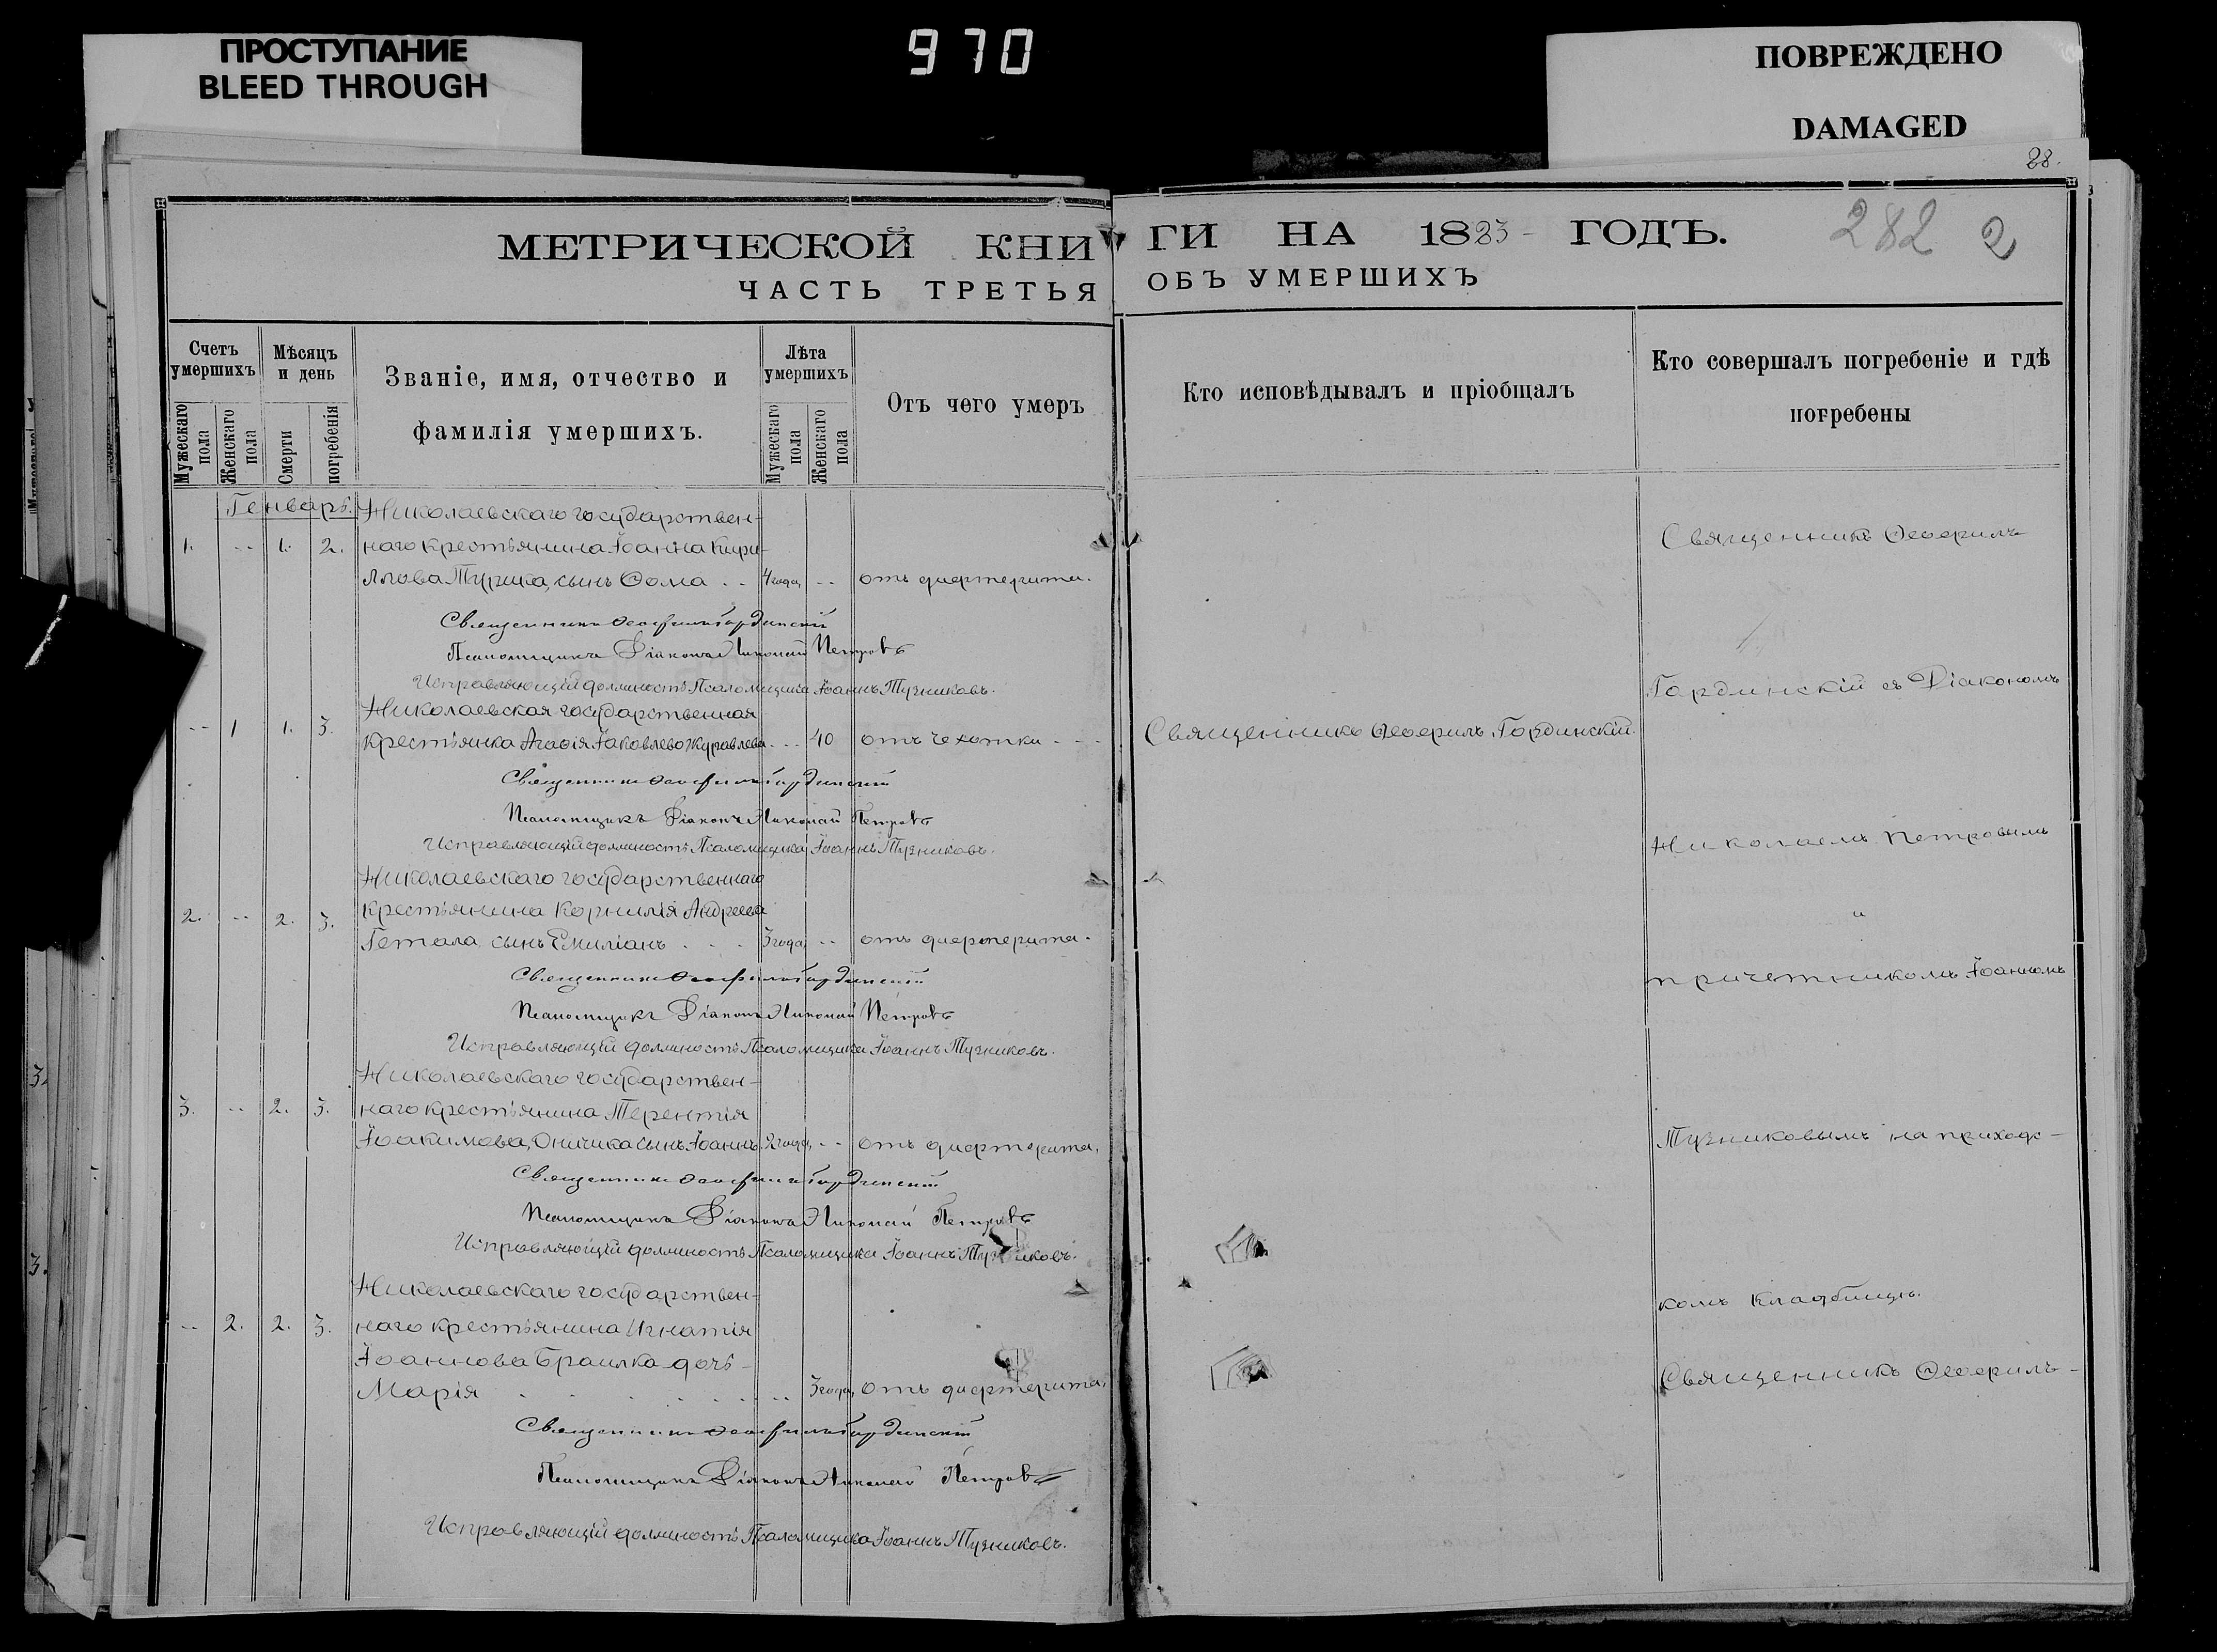 ПРОСТУПАНИЕ
BLEED THROUGH
970
ПОВРЕЖДЕНО
DAMAGED
88.
МЕТРИЧЕСКОЙ КНИ
ГИ НА 1883 ГОДЪ.
282 2
ЧАСТЬ ТРЕТЬЯ
ОБЪ УМЕРШИХЪ
Счетъ умершихъ
Мужескаго пола
Женскаго пола
Мѣсяцъ и день
Смерти
погребенія
Званіе, имя, отчество и
фамилія умершихъ.
Лѣта умершихъ
Мужескаго пола
Женскаго пола
Отъ чего умеръ
Кто исповѣдывалъ и пріобщалъ
Кто совершалъ погребеніе и гдѣ
погребены
Генварь.
Николаевскаго государствен-
1. -- 1. 2. наго крестьянина Іоанна Кири-
ллова сынъ Ѳома . . 4 года -- отъ дифтерита.
Священникъ Ѳеофилъ Гординскій
Псаломщикъ Діаконъ Николай Петровъ
Исправляющій должность Псаломщика Іоаннъ Тузниковъ.
Николаевская государственная
-- 1 1. 3. крестьянка Агаѳія Іаковлева Журавлева . . . 40 отъ чехотки - - -
Священникъ Ѳеофилъ Гординскій
Псаломщикъ Діаконъ Николай Петровъ
Исправляющій должность Псаломщика Іоаннъ Тузниковъ.
Николаевскаго государственнаго
2. -- 2. 3. крестьянина Корнилія Андреева
Гетала сынъ Емиліанъ . . . 3 года -- отъ дифтерита.
Священникъ Ѳеофилъ Гординскій
Псаломщикъ Діаконъ Николай Петровъ
Исправляющій должность Псаломщика Іоаннъ Тузниковъ.
Николаевскаго государствен-
3. -- 2. 3. наго крестьянина Терентія
Іоакимова Оничика сынъ Іоаннъ 2 года -- отъ дифтерита.
Священникъ Ѳеофилъ Гординскій
Псаломщикъ Діаконъ Николай Петровъ
Исправляющій должность Псаломщика Іоаннъ Тузниковъ.
Николаевскаго государствен-
-- 2. 2. 3. наго крестьянина Игнатія
Іоаннова Браилка дочь -
Марія . . . . . . . -- 3 года, отъ дифтерита.
Священникъ Ѳеофилъ Гординскій
Псаломщикъ Діаконъ Николай Петровъ
Исправляющій должность Псаломщика Іоаннъ Тузниковъ.
Священникъ Ѳеофилъ Гординскій.
Священникъ Ѳеофилъ
Гординскій съ Діакономъ
Николаемъ Петровымъ
и
причетникомъ Іоанномъ
Тузниковымъ на приходс-
комъ кладбищѣ.
Священникъ Ѳеофилъ -